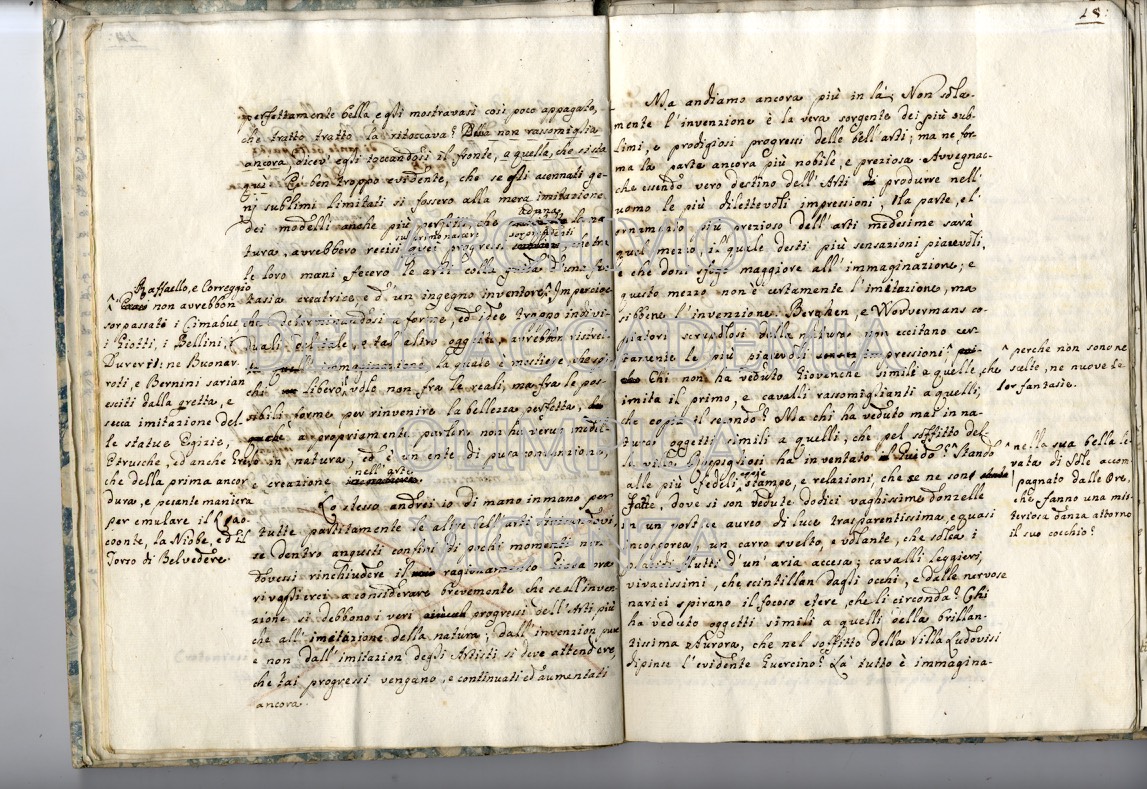 perfettamente bella e egli mostravasi così poco appagato,
che tratto tratto la ritoccava? Della non rassomiglia
ancora dicev' egli toccandosi il fronte, a quella, che si sta
quì. Egli è ben troppo evidente, che se gli accennati ge-
nj sublimi limitati si fossero alla mera imitazione
dei modelli anche più perfetti, che aduna la na-
sul primo nascere sorprendenti
tura, avrebbero recisi quei progressi che tra
le loro mani fecero le arti colla guida d'una fan-
tasia creatrice, e d' un ingegno inventore. ^ Impercioc-
che determinandosi a forme, ed idee troppo indivi-
duali, e al tale, e tal' altro oggetto avrebbon ristret-
ta immaginazione, la quale è mestiere che spi-
chi libero volo non fra le reali, ma fra le pos-
sibili forme per rinvenire la bellezza perfetta,
a propriamente parlare non ha verun model-
lo in natura, ed è un ente di pura
nell' arte
e creazione
Lo stesso andrei io di mano in mano per
tutte partitamente le altre bell' Arti
se dentro angusti confini di pochi momenti non
dovessi rinchiudere il ragionamento
rivolgerci a considerare brevemente che se all' inven-
zione si debbono i veri progressi dell' Arti più
che all' imitazione della natura; dall' invenzion pure
e non dall' imitazion degli Artisti si deve attendere
che tai progressi vengano, e continuati ed aumentati
ancora.
^ Raffaello, e Correggio
non avrebbon
sorpassato i Cimabue
i Giotti, i Bellini, i
Dureri: ne Buonar-
roti, e Bernini sarian
esciti dalla gretta, e
secca imitazione del-
le statue Egizie,
Etrusche, ed anche Gre-
che della prima ancor
dura, e pesante maniera
per emulare il Lao-
coonte, la Niobe, ed il
Torso di Belvedere.
18:
Ma andiamo ancora più in là. Non sola-
mente l' invenzione è la vera sorgente dei più sub-
limi, e prodigiosi progressi delle bell' arti; ma ne for-
ma la parte ancora più nobile, e preziosa. Avvegnac-
che essendo vero destino dell' Arti produrre nell'
uomo le più dilettevoli impressioni, la parte, e l'
ornamento più prezioso dell' arti medesime sarà
quel mezzo, il quale desti più sensazioni piacevoli,
e che doni sfogo maggiore all' immaginazione; e
questo mezzo non è certamente l' imitazione, ma
sibbene l' invenzione. Berghen, e Wovvermans co-
piatori scrupolosi della natura non eccitano cer-
tamente le più piacevoli impressioni ^
Chi non ha veduto Giovenche simili a quelle, che
imita il primo, e cavalli rassomiglianti a quelli,
che copia il secondo? Ma chi ha veduto mai in na-
tura oggetti simili a quelli, che nel soffitto del-
la villa Rospigliosi ha inventato il Guido? ^ Stando
alle più fedeli stampe, e relazioni, che se ne son
fatte, dove si son vedute dodici vaghissime donzelle
in un vortice aureo di luce trasparentissima, e quasi
incoscorea, un carro svelto, e volante, che solca i
placidi flutti d' un' aria accesa; cavalli leggieri,
vivacissimi, che scintillan dagli occhi, e dalle nervose
narici spirano il focoso etere, che li circonda? Chi
ha veduto oggetti simili a quelli della brillan-
tissima Aurora, che nel soffitto della Villa Ludovisi
dipinse l' evidente Guercino? Là tutto è immagina-
^ perche non sono ne
scelte, ne nuove le
lor fantasie.
^ nella sua bella le-
vata di Sole accom-
pagnato dalle Ore,
che fanno una mis-
teriosa danza attorno
il suo cocchio?
ARCHIVIO
DELL'ACCADEMIA
OLIMPICA
VICENZA